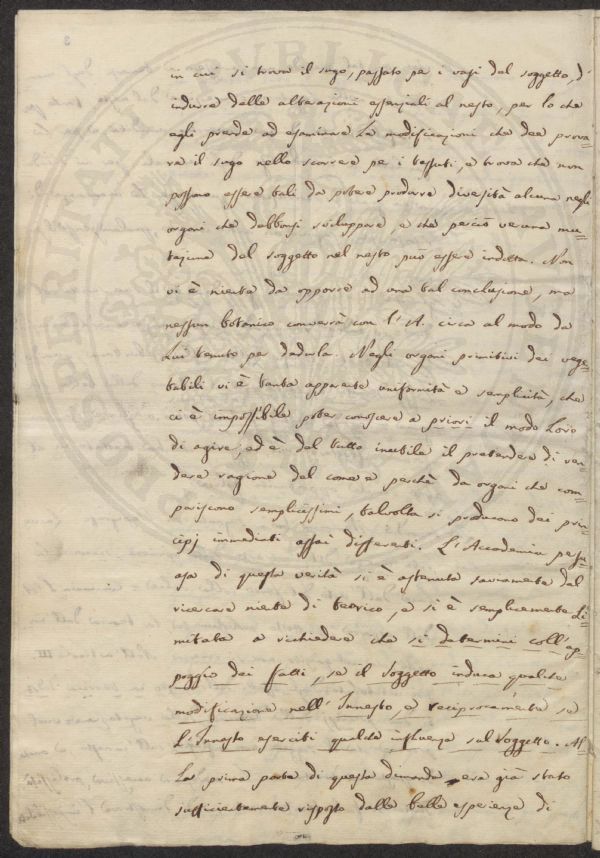 in cui si trova il sugo, passato per i vasi del soggetto, d'
indurre delle alterazioni essenziali al nesto, per lo che
egli prende ad esaminare la modificazioni che dee prova=
ra il sugo nello scorrere per i tessuti, e trova che non
possono essere tali da potere produrre diversità alcuna negli
organi che debbonsi sviluppare, e che perciò veruna mu=
tazione del soggetto nel nesto può essere indotta. Non
vi è niente da opporre ad una tal conclusione, ma
nessun botanico converrà con l'A. circa al modo da
Lui tenuto per dedurla. Negli organi primitivi dei vege=
tabili vi è tanta apparente uniformità e semplicità, che
ci è impossibile poter conoscere a priori il modo loro
di agire, ed è del tutto inutile il pretendere di ren=
dere ragione del come e perchè da organi che com=
pariscono semplicissimi, talvolta si producono dei prin=
cipj immediati assai differenti. L'Accademia persu=
asa di questa verità si è astenuta saviamente dal
ricercare niente di teorico, e si è semplicemente li=
mitata a richiedere che si determini coll'ap=
poggio dei fatti, se il Soggetto induca qualche
modificazione nell'Innesto, e reciprocamente se
l'Innesto eserciti qualche influenza sul Soggetto. Al=
la prima parte di questa dimanda era già stato
sufficientemente risposto dalle belle esperienze di